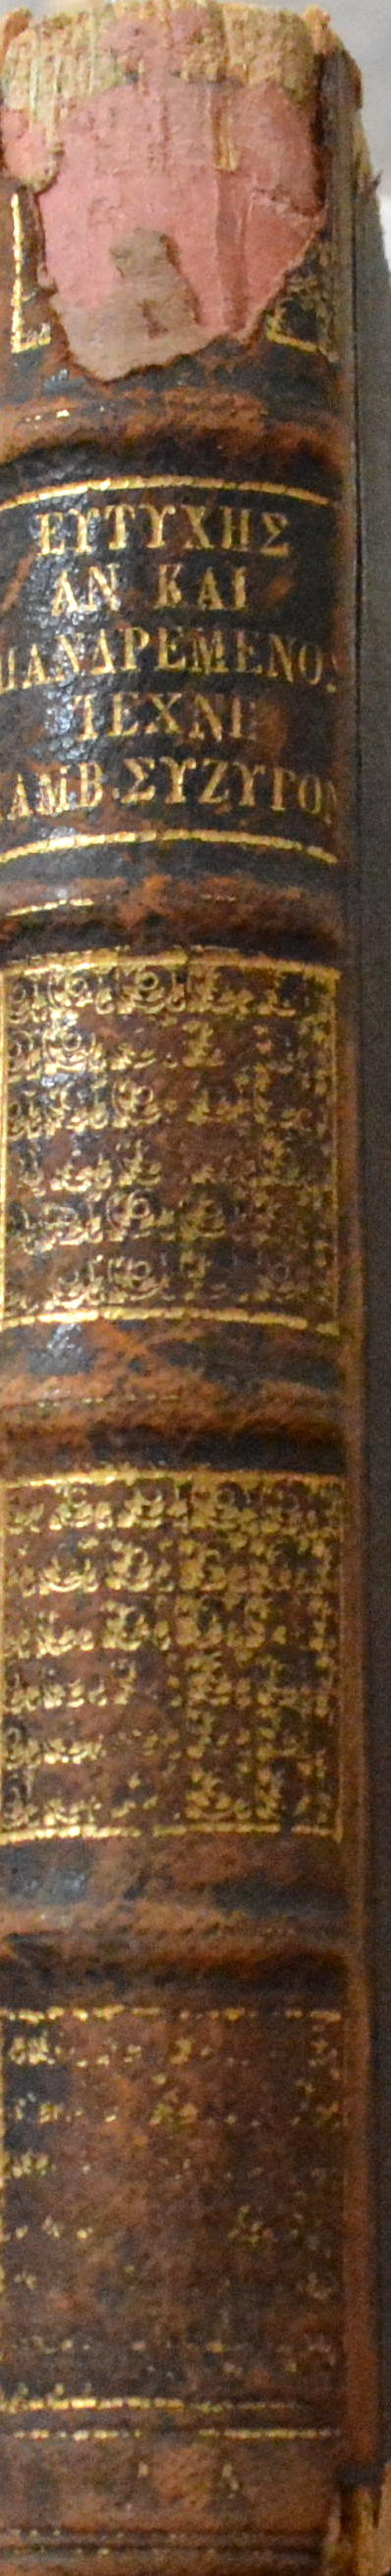 ΕΥΤΥΧΗΣ
ΑΝ ΚΑΙ
ΠΑΝΔΡΕΜΕΝΟΣ
ΤΕΧΝΗ
ΛΑΜΒ.ΣΥΖΥΓΟΝ